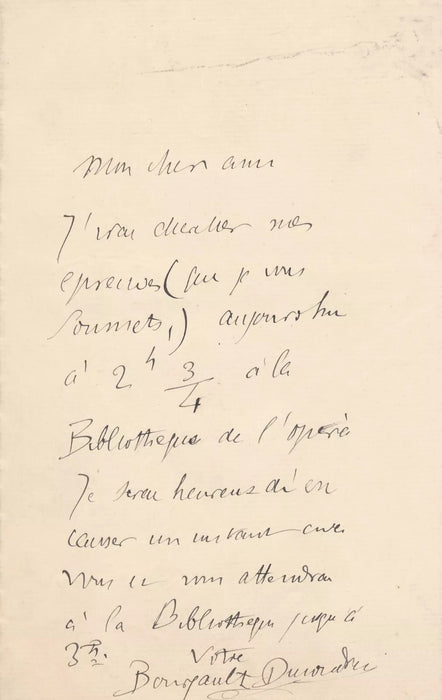 Mon cher ami
J'irai chercher mes
epreuves (que je vous
soumets,) aujourdhui
à 2 h 3/4 à la
Bibliothèque de l'opéra
Je serai heureux d'en
causer un instant avec
vous et vous attendrai
à la Bibliothèque jusqu'à
3 h ½.
Votre
Bourgault Ducoudray